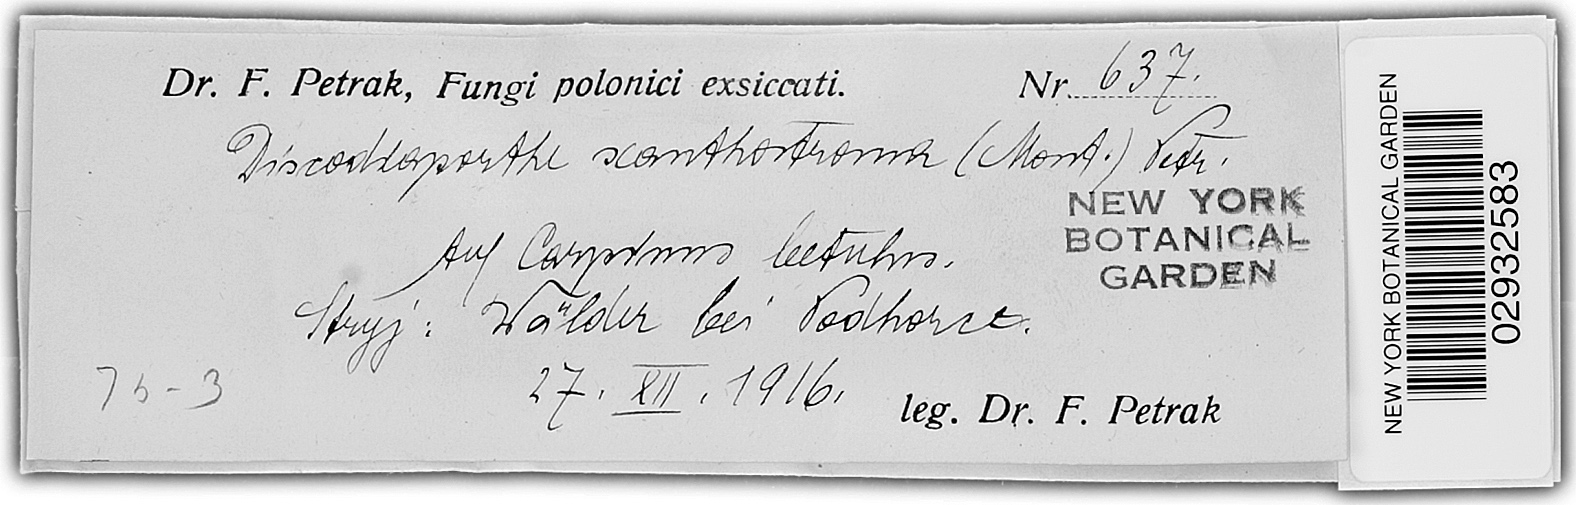 Dr. F. Petrak, Fungi polonici exsiccati. Nr. 637.
Discodiaporthe xanthostroma (Mont.) Petr.
NEW YORK
BOTANICAL
GARDEN
Auf Carpinus betulus.
Stryj: Wälder bei Podhorce.
27. XII. 1916.
leg. Dr. F. Petrak
75-3
NEW YORK BOTANICAL GARDEN
02932583